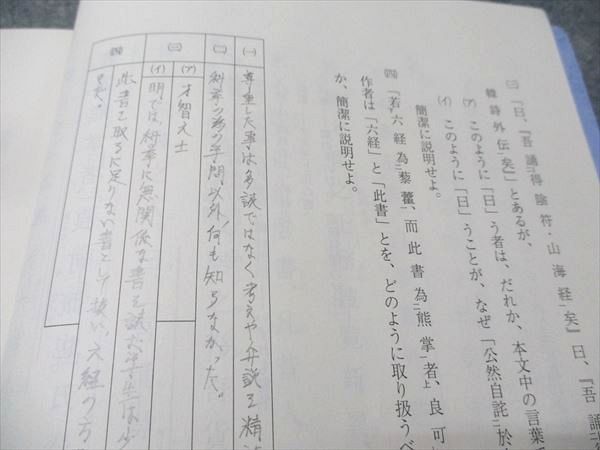 ㈢ 「曰、『吾誦得陰符・山海経矣』曰、『吾誦
韓詩外伝矣』」とあるが、
㋐ このように「曰」う者は、だれか、本文中の言葉で
㋑ このように「曰」うことが、なぜ「公然自詫於
簡潔に説明せよ。
㈣ 「若六経為藜藿、而此書為熊掌者、良可
作者は「六経」と「此書」とを、どのように取り扱うべ
か、簡潔に説明せよ。
㈠ 尊重した事は多読ではなく考えや弁説を精
㈡ 科挙の為の学問以外何も知らなかった。
㈢ ㋐ 才智之士
㋑ 明では、科挙に無関係な書を読だ学生は少
㈣ 此書を取るに足りない書として扱い、六経の方